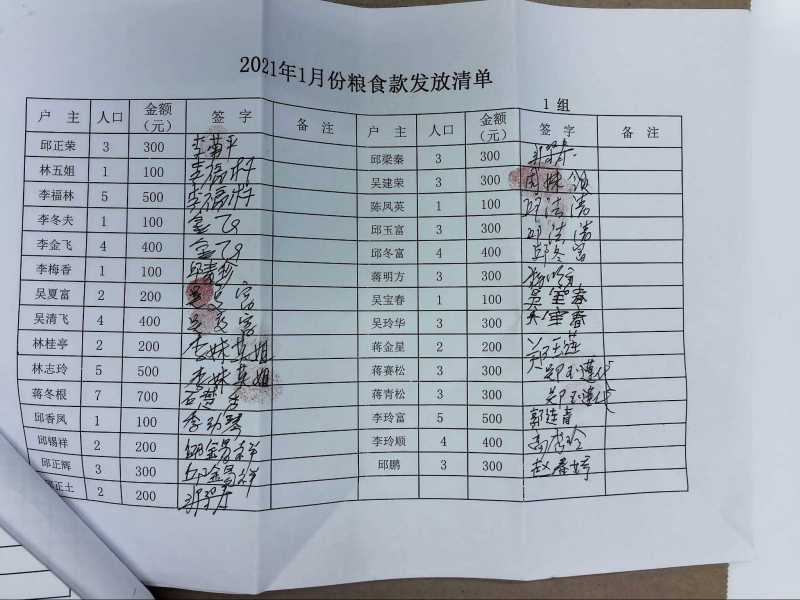 2021年1月份粮食款发放清单
1 组
户 主 人口 金额（元） 签 字 备 注 户 主 人口 金额（元） 签 字 备 注
邱正荣 3 300 邱梁秦 3 300
林五姐 1 100 李福林 吴建荣 3 300 周妹
李福林 5 500 李福林 陈凤英 1 100 邱洁清
李冬夫 1 100 邱玉富 3 300 邱洁清
李金飞 4 400 邱冬富 4 400 邱冬富
李梅香 1 100 蒋明方 3 300
吴夏富 2 200 吴宝春 1 100 吴宝春
吴清飞 4 400 吴玲华 3 300 吴宝春
林桂亭 2 200 李妹英姐 蒋金星 2 200 郑玉莲
林志玲 5 500 李妹英姐 蒋赛松 3 300
蒋冬根 7 700 蒋青松 3 300
邱香凤 1 100 李玲富 5 500 郭连青
邱锡祥 2 200 李玲顺 4 400
邱正辉 3 300 邱鹏 3 300 赵春娇
正土 2 200